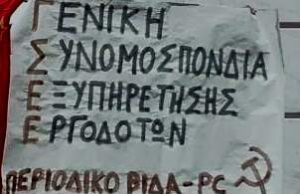 ΓΕΝΙΚΗ
ΣΥΝΟΜΟΣΠΟΝΔΙΑ
ΕΞΥΠΗΡΕΤΗΣΗΣ
ΕΡΓΟΔΟΤΩΝ
ΠΕΡΙΟΔΙΚΟ ΒΙΔΑ-PC